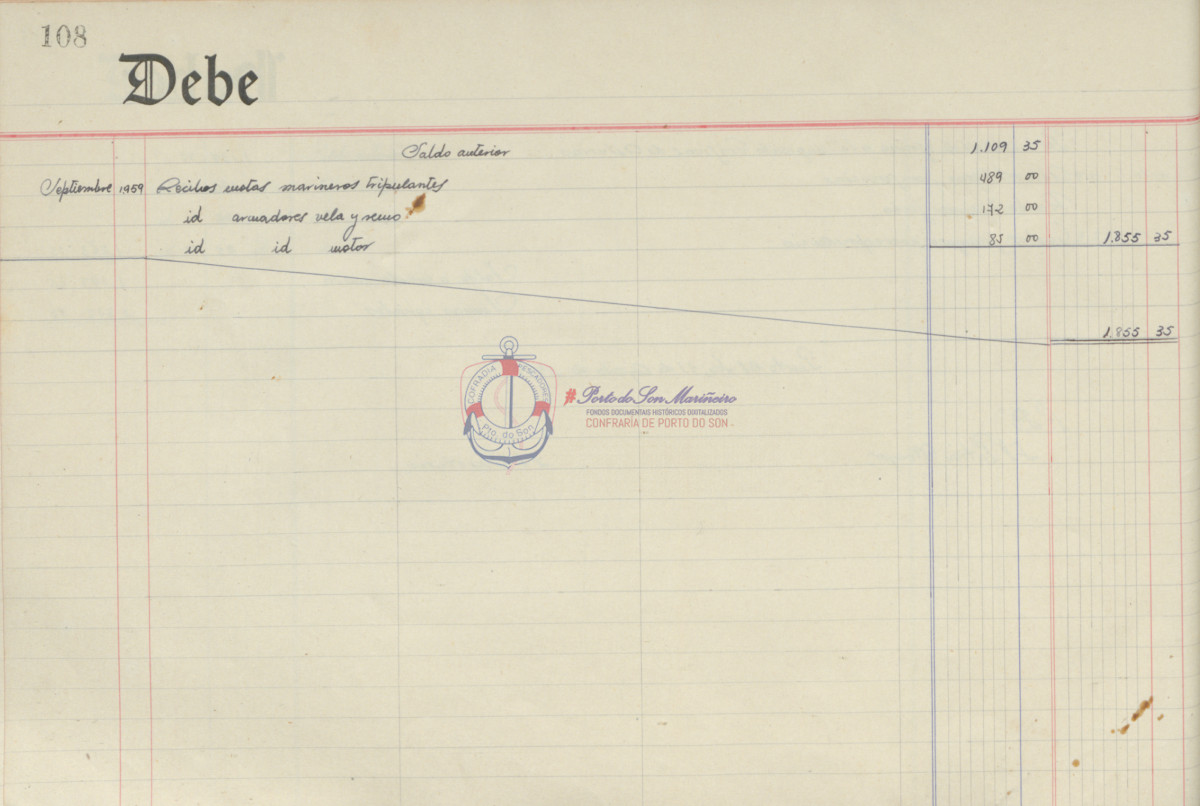 108
Debe
Saldo anterior 1.109 35
Septiembre 1959 Recibos cuotas marineros tripulantes 489 00
id armadores vela y remo 172 00
id id motor 85 00 1.855 35
1.855 35
COFRADIA PESCADORES
Pto. do Son
#Porto do Son Mariñeiro
FONDOS DOCUMENTAIS HISTÓRICOS DIXITALIZADOS
CONFRARÍA DE PORTO DO SON